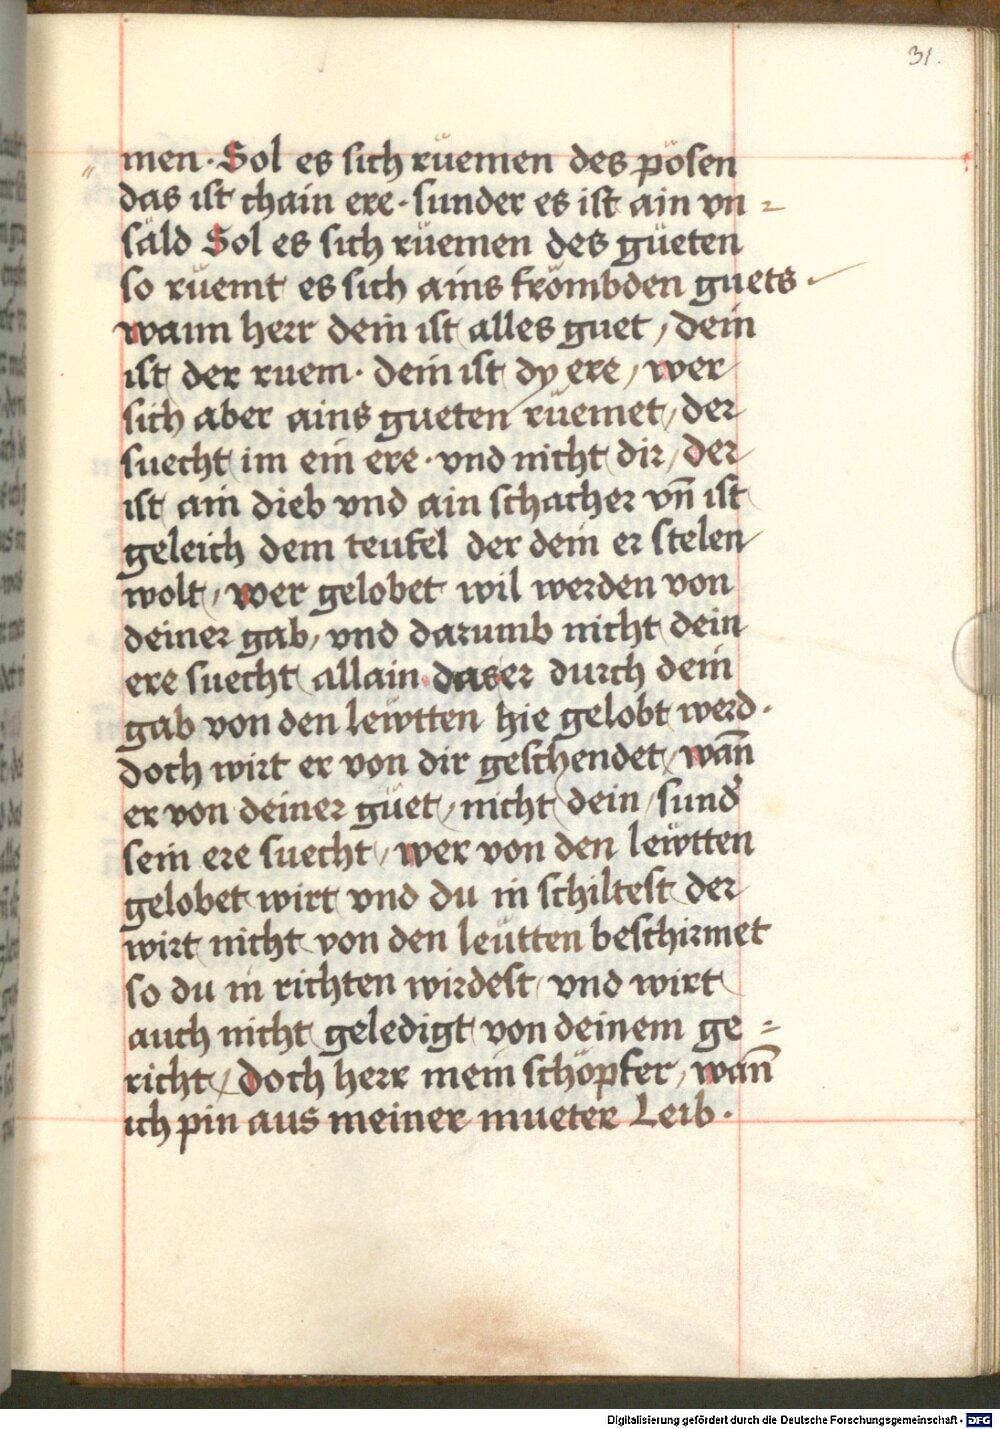 31.
men · Sol es sich rüemen des pösen
das ist chain ere · sunder es ist ain vn⸗
säld Sol es sich rüemen des güeten
so rüemt es sich ains frömbden guets
wann herr dein ist alles guet / dein
ist der ruem · dein ist dy ere / wer
sich aber ains gueten rüemet / der
suecht im ein ere · vnd nicht dir / der
ist ain dieb vnd ain schacher vn̄ ist
geleich dem teufel der dein er stelen
wolt / wer gelobet wil werden von
deiner gab / vnd darumb nicht dein
ere suecht allain das er durch dein
gab von den lewtten hie gelobt werd ·
doch wirt er von dir geschendet / wan̄
er von deiner güet / nicht dein / sund̕
sein ere suecht / wer von den lewtten
gelobet wirt vnd du in schiltest der
wirt nicht von den leütten beschirmet
so du in richten wirdest / vnd wirt
auch nicht geledigt von deinem ge⸗
richt / doch herr mein schöpfer / wan̄
ich pin aus meiner mueter Leib ·
Digitalisierung gefördert durch die Deutsche Forschungsgemeinschaft - DFG